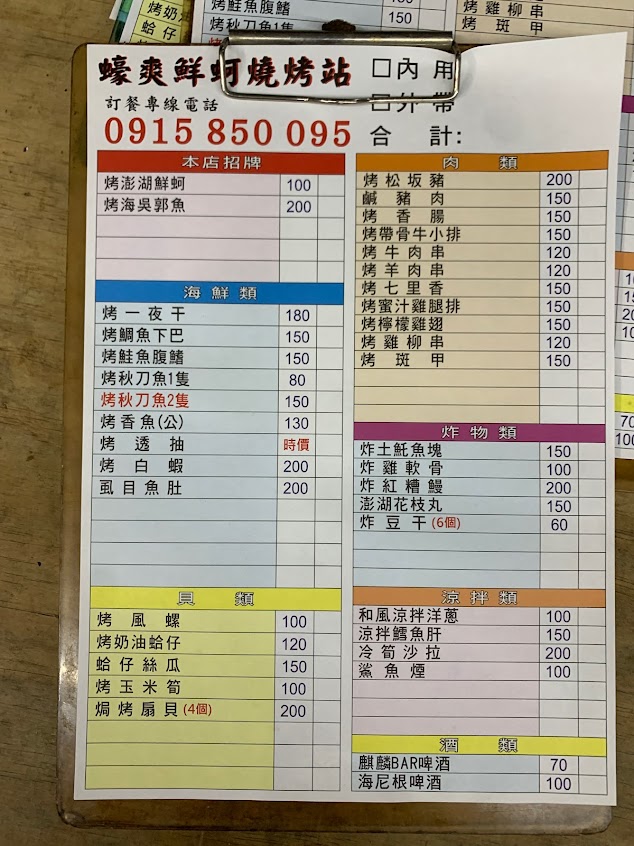 烤鮭魚腹鰭
150
烤雞柳串
烤斑甲
蠔爽鮮蚵燒烤站
口內用
口外帶
訂餐專線電話
0915 850 095
合計:
本店招牌
烤澎湖鮮蚵 100
烤海吳郭魚 200
海鮮類
烤一夜干 180
烤鯛魚下巴 150
烤鮭魚腹鰭 150
烤秋刀魚1隻 80
烤秋刀魚2隻 150
烤香魚(公) 130
烤透抽 時價
烤白蝦 200
虱目魚肚 200
貝類
烤風螺 100
烤奶油蛤仔 120
蛤仔絲瓜 150
烤玉米筍 100
焗烤扇貝(4個) 200
肉類
烤松坂豬 200
鹹豬肉 150
烤香腸 150
烤帶骨牛小排 150
烤牛肉串 120
烤羊肉串 120
烤七里香 150
烤蜜汁雞腿排 150
烤檸檬雞翅 150
烤雞柳串 120
烤斑甲 150
炸物類
炸土魠魚塊 150
炸雞軟骨 100
炸紅糟鰻 200
澎湖花枝丸 150
炸豆干(6個) 60
涼拌類
和風涼拌洋蔥 100
涼拌鱈魚肝 150
冷筍沙拉 200
鯊魚煙 100
酒類
麒麟BAR啤酒 70
海尼根啤酒 100